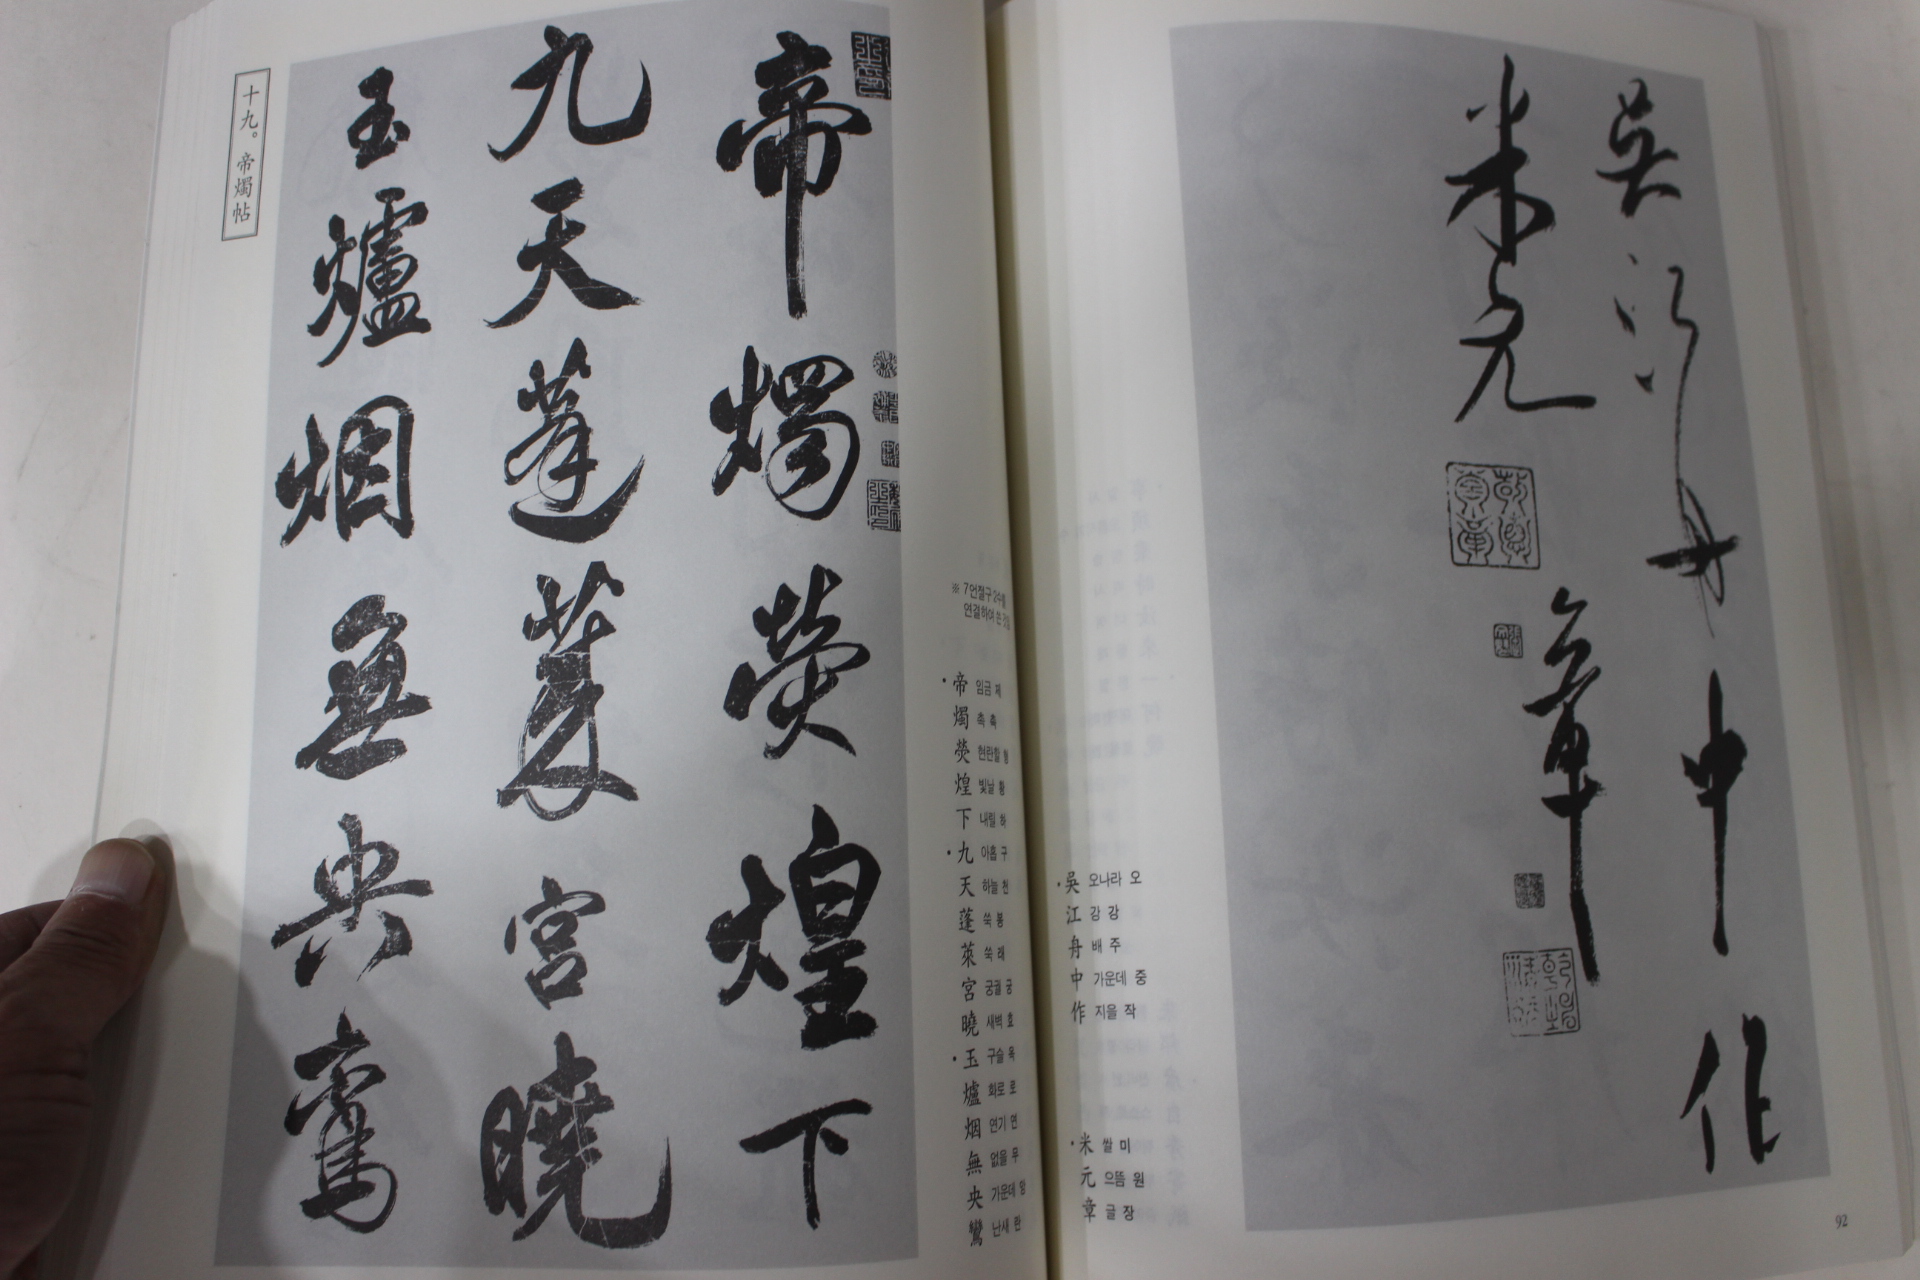 吳江舟中作
米元章
・吳 오나라 오
江 강 강
舟 배 주
中 가운데 중
作 지을 작
・米 쌀 미
元 으뜸 원
章 글 장
92
帝燭熒煌下
九天蓬萊宮曉
玉爐烟無央鸞
十九。帝燭帖
※ 7언절구 2수를
연결하여 쓴 것임
・帝 임금 제
燭 촉 촉
熒 현란할 형
煌 빛날 황
下 내릴 하
・九 아홉 구
天 하늘 천
蓬 쑥 봉
萊 쑥 래
宮 궁궐 궁
曉 새벽 효
・玉 구슬 옥
爐 화로 로
烟 연기 연
無 없을 무
央 가운데 앙
鸞 난새 란